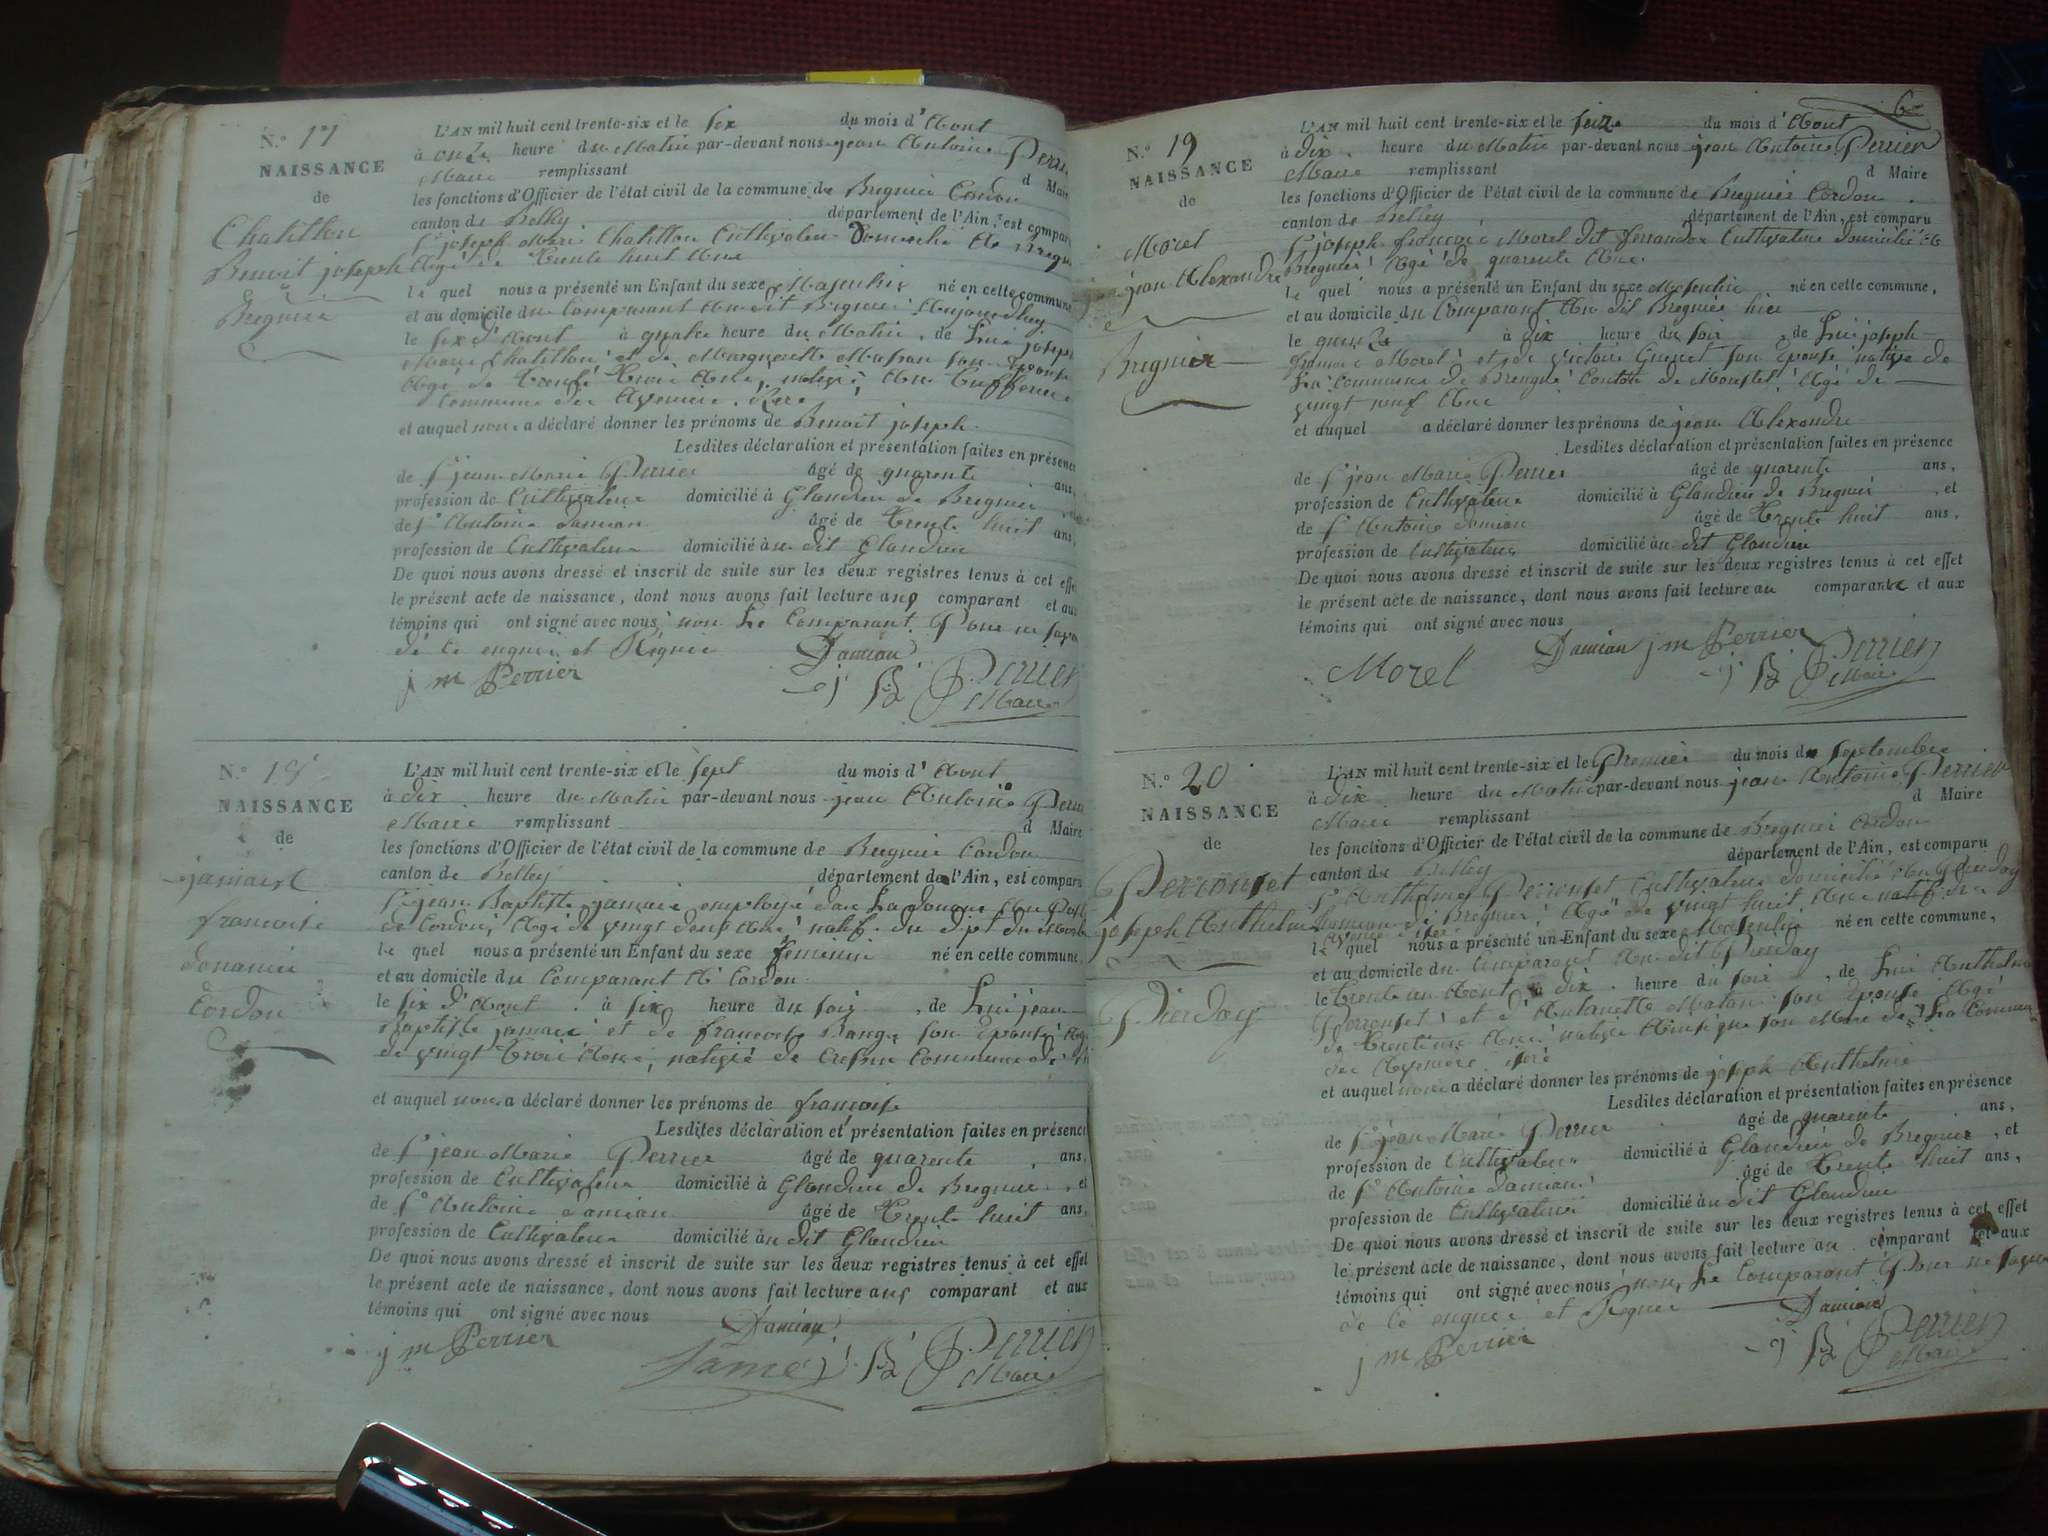 N.° 17
NAISSANCE
de
Chatillon
Benoit joseph
Bregnier
L'AN mil huit cent trente-six et le six du mois d'Aout
à onze heure du Matin par-devant nous jean Antoine Perrier
Maire remplissant d Maire
les fonctions d'Officier de l'état civil de la commune de Bregnier Cordon
canton de Belley département de l'Ain, est comparu
Sr joseph Marie Chatillon Cultivateur Domicilié A Bregnier
Agé de Trente huit Ans
le quel nous a présenté un Enfant du sexe Masculin né en cette commune
et au domicile du Comparant Au dit Bregnier Aujourdhuy
le six d'Aout à quatre heure du Matin, de Lui joseph
Marie Chatillon et de Marguerette son Epouse
Agé de Trente Trois Ans, native
commune des Avenieres
et auquel nous a déclaré donner les prénoms de Benoit joseph
Lesdites déclaration et présentation faites en présence
de Sr jean Marie Perrier âgé de quarente ans,
profession de Cultivateur domicilié à Glandieu de Bregnier
de Sr Antoine Damian âgé de Trente huit ans,
profession de Cultivateur domicilié au dit Glandieu
De quoi nous avons dressé et inscrit de suite sur les deux registres tenus à cet effet
le présent acte de naissance, dont nous avons fait lecture aux comparant et aux
témoins qui ont signé avec nous non Le Comparant Pour ne savoir
de ce enquis et Requis
Damian
j m Perrier
j B Perrier
Maire
N.° 18
NAISSANCE
de
francoise
Cordon
L'AN mil huit cent trente-six et le sept du mois d'Aout
à dix heure du Matin par-devant nous jean Antoine Perrier
Maire remplissant d Maire
les fonctions d'Officier de l'état civil de la commune de Bregnier Cordon
canton de Belley département de l'Ain, est comparu
Sr jean Baptiste employé dans La douane Au Post
de Cordon, Agé de vingt deux Ans, natif du dpt du
le quel nous a présenté un Enfant du sexe feminin né en cette commune,
et au domicile du Comparant A Cordon
le six d'Aout à six heure du soir, de Lui jean
Baptiste et de francoise son Epouse Agé
de vingt Trois Ans, native de commune de
et auquel nous a déclaré donner les prénoms de françoise
Lesdites déclaration et présentation faites en présence
de Sr jean Marie Perrier âgé de quarente, ans,
profession de Cultivateur domicilié à Glandieu de Bregnier, et
de Sr Antoine Damian âgé de Trente huit ans,
profession de Cultivateur domicilié au dit Glandieu
De quoi nous avons dressé et inscrit de suite sur les deux registres tenus à cet effet
le présent acte de naissance, dont nous avons fait lecture aux comparant et aux
témoins qui ont signé avec nous
Damian
j m Perrier
j B Perrier
Maire
6
N.° 19
NAISSANCE
de
Morel
jean Alexandre
Bregnier
L'AN mil huit cent trente-six et le seize du mois d'Aout
à dix heure du Matin par-devant nous jean Antoine Perrier
Maire remplissant d Maire
les fonctions d'Officier de l'état civil de la commune de Bregnier Cordon
canton de Belley département de l'Ain, est comparu
Sr joseph francois Morel dit ferrandon Cultivateur domicilié A
Bregnier Agé de quarente Ans
le quel nous a présenté un Enfant du sexe Masculin né en cette commune,
et au domicile du Comparant Au dit Bregnier hier
le quinze à dix heure du soir, de Lui joseph
francois Morel et de victoire son Epouse native de
La commune de Canton de Morestel Agé de
vingt neuf Ans
et auquel a déclaré donner les prénoms de jean Alexandre
Lesdites déclaration et présentation faites en présence
de Sr jean Marie Perrier âgé de quarente ans,
profession de Cultivateur domicilié à Glandieu de Bregnier, et
de Sr Antoine Damian âgé de Trente huit ans,
profession de Cultivateur domicilié au dit Glandieu
De quoi nous avons dressé et inscrit de suite sur les deux registres tenus à cet effet
le présent acte de naissance, dont nous avons fait lecture au comparant et aux
témoins qui ont signé avec nous
Damian j m Perrier
Morel
j B Perrier
Maire
N.° 20
NAISSANCE
de
Perrouset
joseph Anthelme
Pierday
L'AN mil huit cent trente-six et le Premier du mois de septembre
à dix heure du Matin par-devant nous jean Antoine Perrier
Maire remplissant d Maire
les fonctions d'Officier de l'état civil de la commune de Bregnier Cordon
canton de Belley département de l'Ain, est comparu
Sr Anthelme Perrouset Cultivateur domicilié Au Pierday
de Bregnier, Agé de vingt huit Ans natif des
le quel nous a présenté un Enfant du sexe Masculin né en cette commune,
et au domicile du Comparant Au dit Pierday
le Trente un Aout à dix heure du soir, de Lui Anthelme
Perrouset et d'Antoinette son Epouse Agé
de Trente Ans native de La Commune
des Avenieres isere
et auquel nous a déclaré donner les prénoms de joseph Anthelme
Lesdites déclaration et présentation faites en présence
de Sr jean Marie Perrier âgé de quarente ans,
profession de Cultivateur domicilié à Glandieu de Bregnier, et
de Sr Antoine Damian âgé de Trente huit ans,
profession de Cultivateur domicilié au dit Glandieu
De quoi nous avons dressé et inscrit de suite sur les deux registres tenus à cet effet
le présent acte de naissance, dont nous avons fait lecture au comparant et aux
témoins qui ont signé avec nous non Le Comparant Pour ne savoir
de ce enquis et Requis
Damian
j m Perrier
j B Perrier
Maire